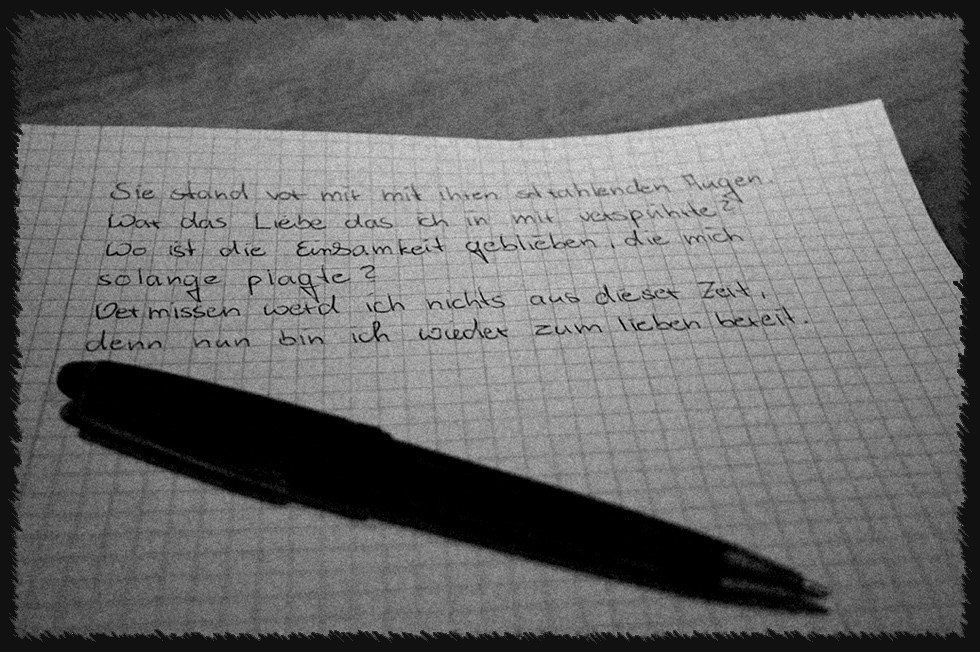 Sie stand vor mir mit ihren strahlenden Augen.
War das Liebe das ich in mir verspührte?
Wo ist die Einsamkeit geblieben, die mich
solange plagte?
Vermissen werd ich nichts aus dieser Zeit,
denn nun bin ich wieder zum lieben bereit.